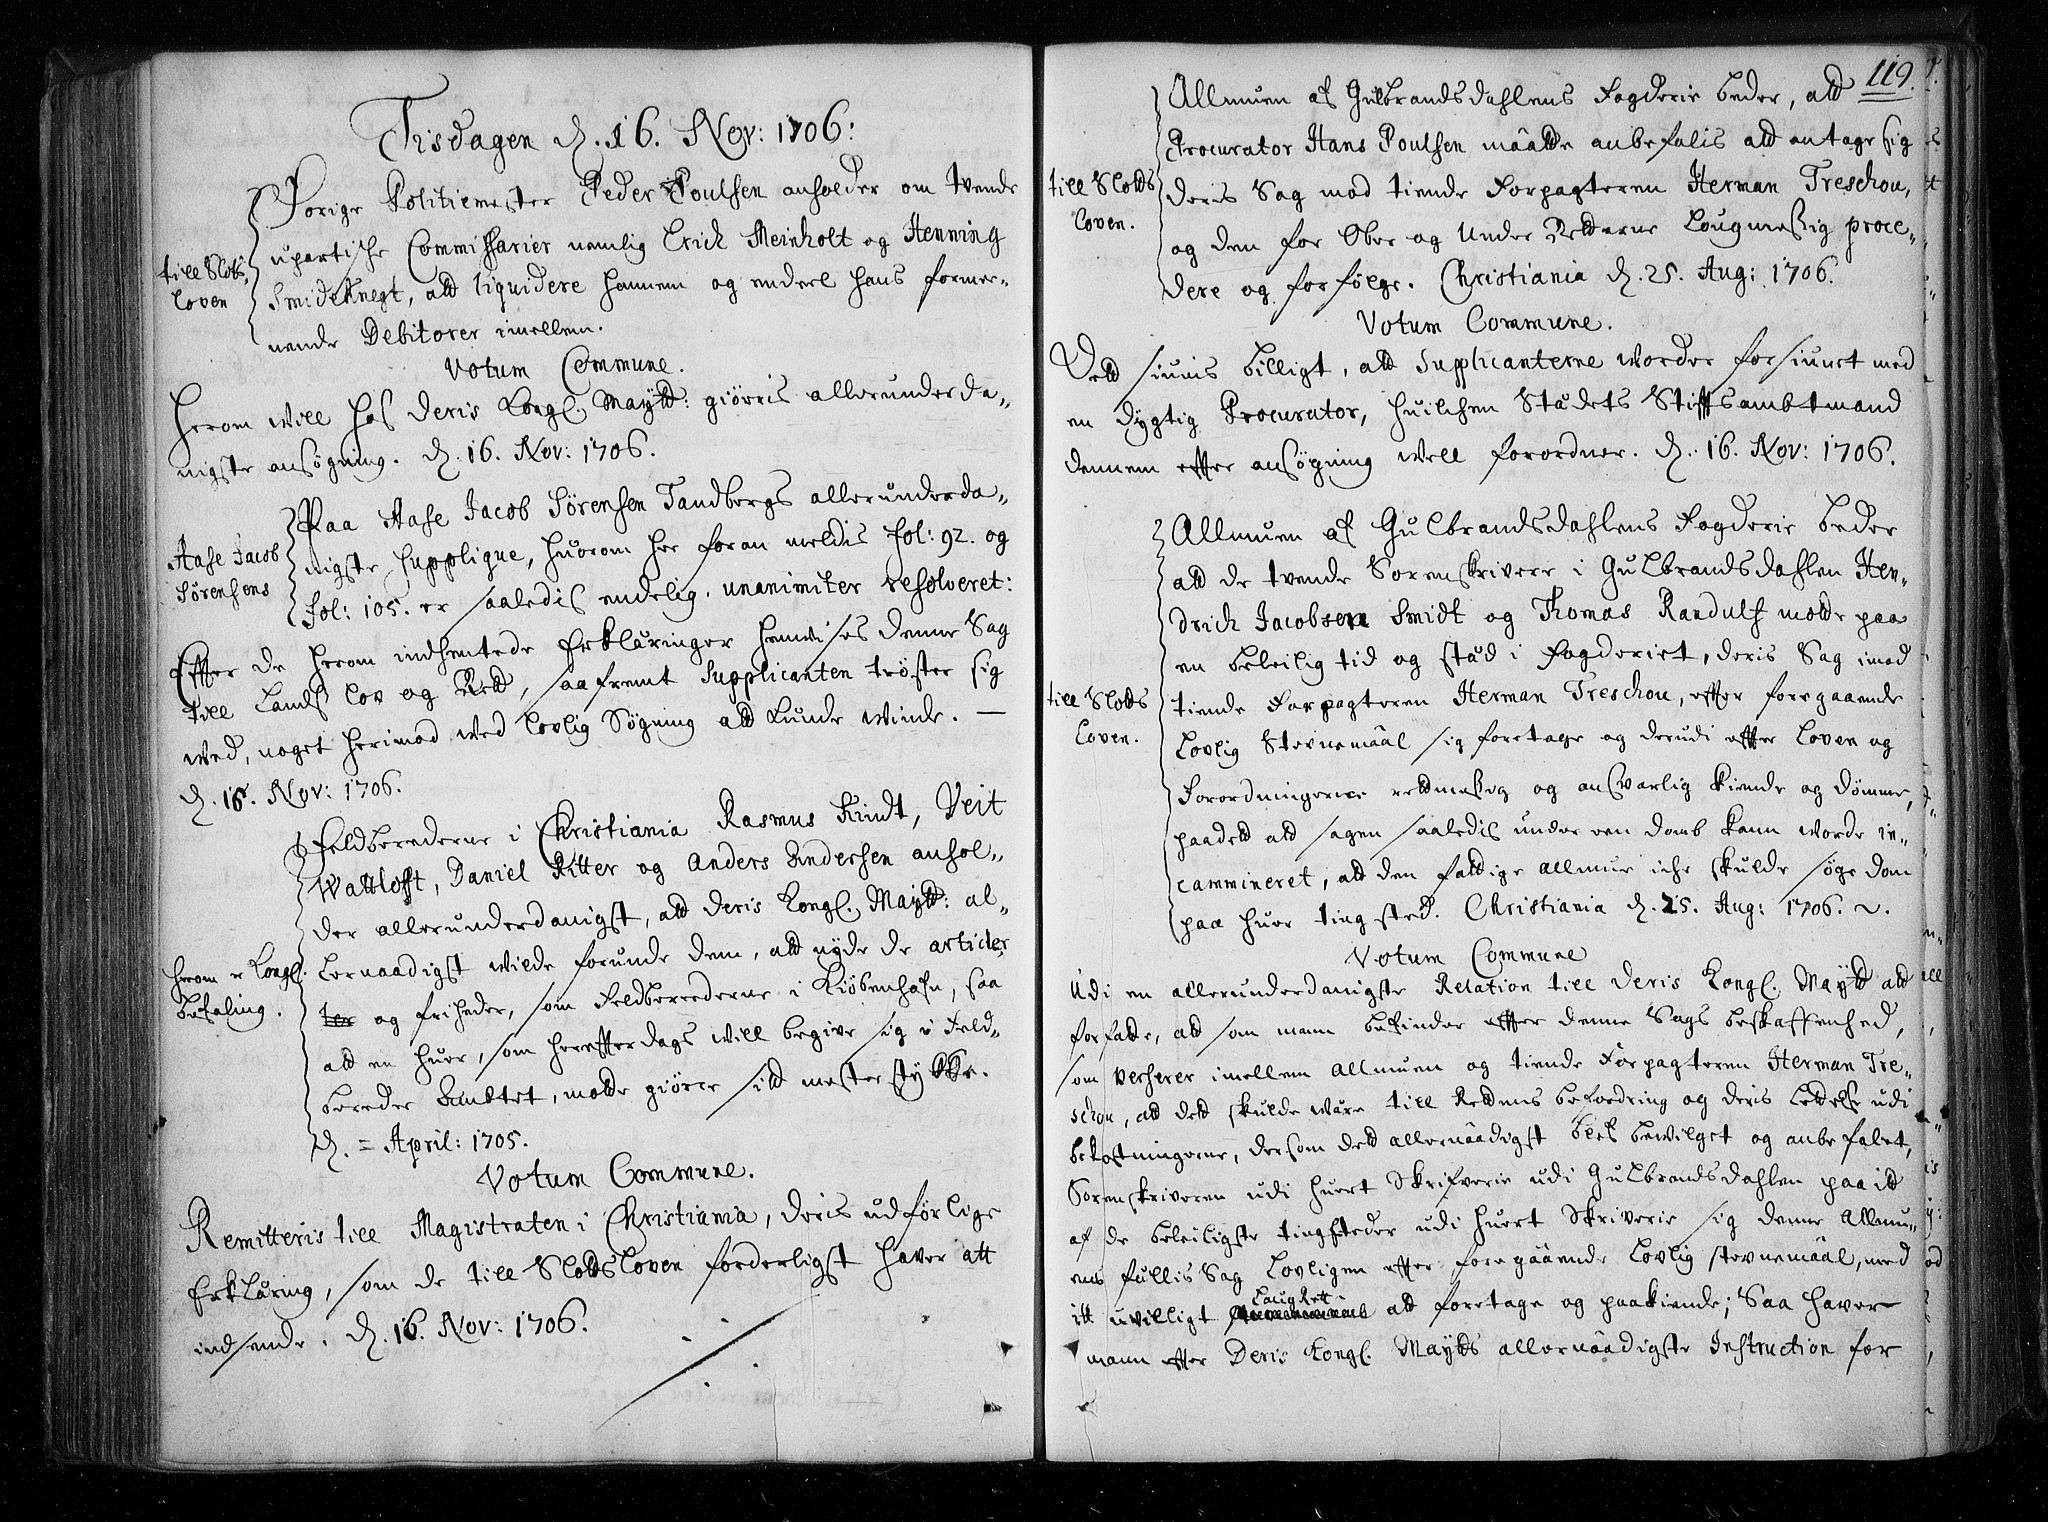 Tisdagen d. 16. Nov: 1706:
Forige Politiemester Peder Poulsen anholder om tvende
upartishe Commissarier nemlig Erich Meinholt og Henning
till Slots
loven
Smideknegt, att liquidere hannem og endeel hans formee-
nende Debitorer imellem.
Votum Commune.
Herom will hos Deris Kongl. Maytt: giörris allerunderda-
nigste ansøgning. d. 16. Nov: 1706.
Paa Aase Jacob Sörensen Tandbergs allerunderda-
nigste supplique, huorom her foran meldis fol: 92. og
Aase Jacob
Sörensens
fol: 105. er saaledis endelig unanimiter resolveret:
Effter de herom indhentede Erkläringer henvises denne Sag
till Lands Lov og Rett, saafremt Supplicanten tröster sig
wed, noget herimod wed lovlig Sögning att kunde winde. —
d. 16. Nov: 1706.
Feldberederne i Christiania Rasmus Kindt, Veit
Wattlofft, Daniel Ritter og Anders Andersen anhol-
der allerunderdanigst, att Deris Kongl. Maytt: al-
herom er Kongl.
befaling.
lernaadigst wilde forunde dem, att nyde de articler
ter og friheder, som Feldberederne i Kiöbenhafn, saa
att en huer, som hereffterdags will begive sig i Feld-
bereder Embtet, motte giörre sitt mesterstykke.
d. = April: 1705.
Votum Commune.
Remitteris till Magistraten i Christiania, deris udførlige
Erkläring, som de till Slottsloven forderligst haver att
indsende. d. 16. Nov: 1706.
119.
Allmuen af Gulbrandsdahlens Fogderie beder, att
Procurator Hans Poulsen maatte anbefalis att antage sig
till Slotts
loven.
deris Sag mod tiende Forpagteren Herman Treschou,
og dem for Ober og Under Retterne lougmessig proce-
dere og forfölge. Christiania d. 25. Aug: 1706.
Votum Commune.
Dett siunis billigt, att Supplicanterne worder forsiunet med
en dygtig Procurator, huilchen Stædets Stifftsambtmand
dennem effter ansögning well forordner. d. 16. Nov: 1706.
Allmuen af Gulbrandsdahlens Fogderie beder
att de tvende Sorenskrivere i Gulbrandsdahlen Hen-
drich Jacobsen Smidt og Thomas Randulf motte paa
en beleilig tid og stæd i Fogderiet, deris Sag imod
till Slotts
loven.
tiende Forpagteren Herman Treschou, effter foregaaende
lovlig Stevnemaal sig foretage og derudi effter loven og
Forordningerne rettmessig og ansvarlig kiende og dömme,
paadett att sagen saaledis under een domb kann worde in-
cammineret, att den fattige allmue iche skulde söge dom
paa huer tingsted. Christiania d. 25. Aug: 1706.
Votum Commune
Udi en allerunderdanigste Relation till Deris Kongl. Maytt att
forfatte, att som mann befinder effter denne Sags beskaffenhed,
som verserer imellem allmuen og tiende Forpagteren Herman Tre-
schou, att dett skulde være till Rettens befordring og deris Lettelse udi
bekostningerne, dersom dett allernaadigst blef bevilget og anbefalet,
Sorenskriveren udi huert Skrifverie udi Gulbrandsdahlen paa itt
af de beleiligste tingsteder udi huert Skriverie sig denne Allmu-
ens fællis Sag lovligen effter foregaaende lovlig stevnemaal, med
Laug Rett
itt uvilligt att foretage og paakiende; Saa haver
mann effter Deris Kongl. Maytts allernaadigste Instruction for